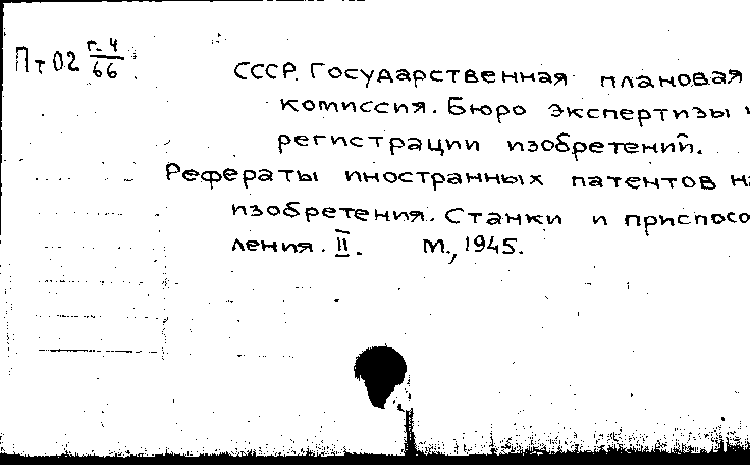 Пт02 г-4/66
СССР. Государственная плановая
комиссия. Бюро экспертизы и
регистрации изобретений.
Рефераты иностранных патентов на
изобретения. Станки и приспосо
ления. II. М., 1945.